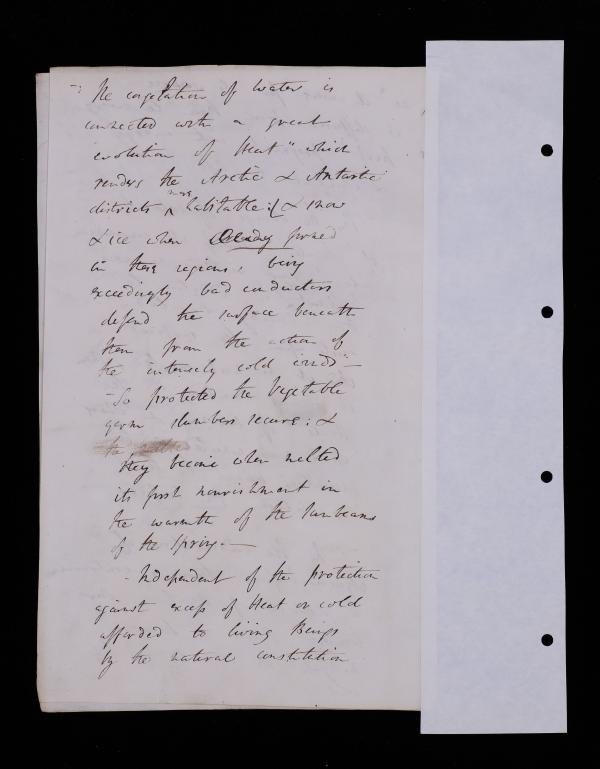 The congelation of Water is
connected with a great
evolution of Heat" which
renders the Arctic & Antartic
more
districts ^ habitable: (& snow
& ice when already formed
in these regions, being
exceedingly bad conductors
defend the surface beneath
them from the action of
the intensely cold winds"—
- So protected the Vegetable
germ slumbers secure: &
they become when melted
its first nourishment in
the warmth of the Sunbeams
of the Spring.—
- Independent of the protection
against excess of Heat or cold
afforded to living Beings
by the natural constitution